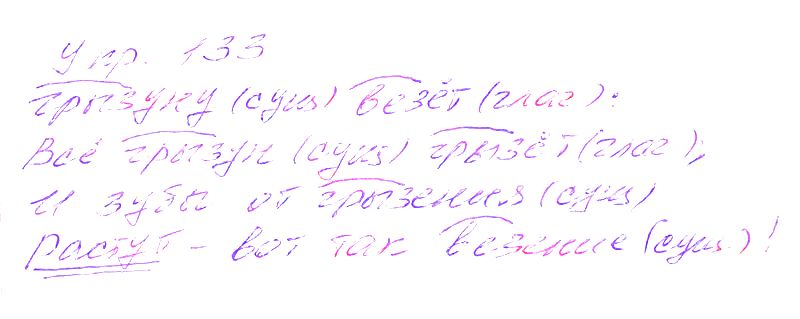 Упр. 133
Грызуну (сущ) везёт (глаг):
Всё грызун (сущ) грызёт (глаг),
И зубы от грызения (сущ)
Растут - вот так везение (сущ.)!